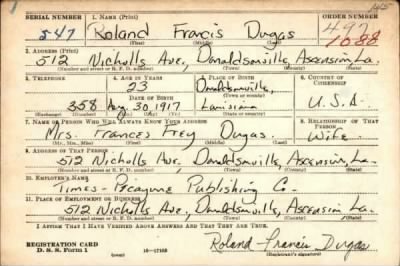 145
SERIAL NUMBER 1. NAME (Print) ORDER NUMBER
547 Roland Francis Dugas 497
1088
(First) (Middle) (Last)
2. ADDRESS (Print)
512 Nicholls Ave., Donaldsonville, Ascension, La.
(Number and street or R. F. D. number) (Town) (County) (State)
3. TELEPHONE 4. AGE IN YEARS 5. PLACE OF BIRTH 6. COUNTRY OF CITIZENSHIP
23 Donaldsonville,
DATE OF BIRTH (Town or county)
358 Aug. 30, 1917 Louisiana U.S.A.
(Mo.) (Day) (Yr.) (State or country)
7. NAME OF PERSON WHO WILL ALWAYS KNOW YOUR ADDRESS 8. RELATIONSHIP OF THAT PERSON
Mrs. Frances Frey Dugas. Wife
(Mr., Mrs., Miss) (First) (Middle) (Last)
9. ADDRESS OF THAT PERSON
512 Nicholls Ave., Donaldsonville, Ascension, La.
(Number and street or R. F. D. number) (Town) (County) (State)
10. EMPLOYER'S NAME
Times-Picayune Publishing Co.
11. PLACE OF EMPLOYMENT OR BUSINESS
512 Nicholls Ave., Donaldsonville, Ascension La.
(Number and street or R. F. D. number) (Town) (County) (State)
I AFFIRM THAT I HAVE VERIFIED ABOVE ANSWERS AND THAT THEY ARE TRUE.
Roland Francis Dugas
REGISTRATION CARD
D. S. S. Form 1 (over) 16—17105 (Registrant's signature)